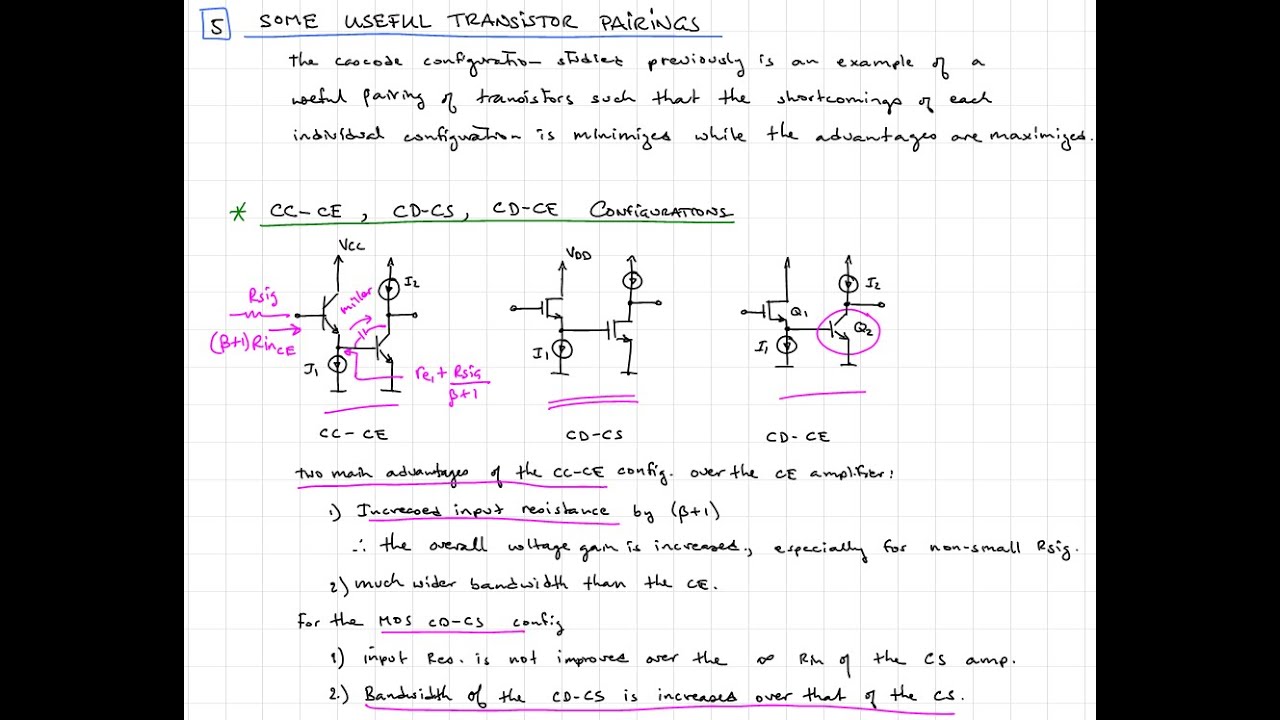 5 SOME USEFUL TRANSISTOR PAIRINGS
the cascode configuration studied previously is an example of a
useful pairing of transistors such that the shortcomings of each
individual configuration is minimized while the advantages are maximized.
* CC-CE, CD-CS, CD-CE CONFIGURATIONS
VCC
I2
Rsig
miller
(β+1)RinCE
I1
re1 + Rsig/β+1
CC-CE
VDD
I1
CD-CS
I2
Q1
Q2
I1
CD-CE
Two main advantages of the CC-CE config. over the CE amplifier:
1) Increased input resistance by (β+1)
∴ the overall voltage gain is increased, especially for non-small Rsig.
2) much wider bandwidth than the CE.
For the MOS CD-CS config
1) input Res. is not improved over the ∞ Rin of the CS amp.
2.) Bandwidth of the CD-CS is increased over that of the CS.